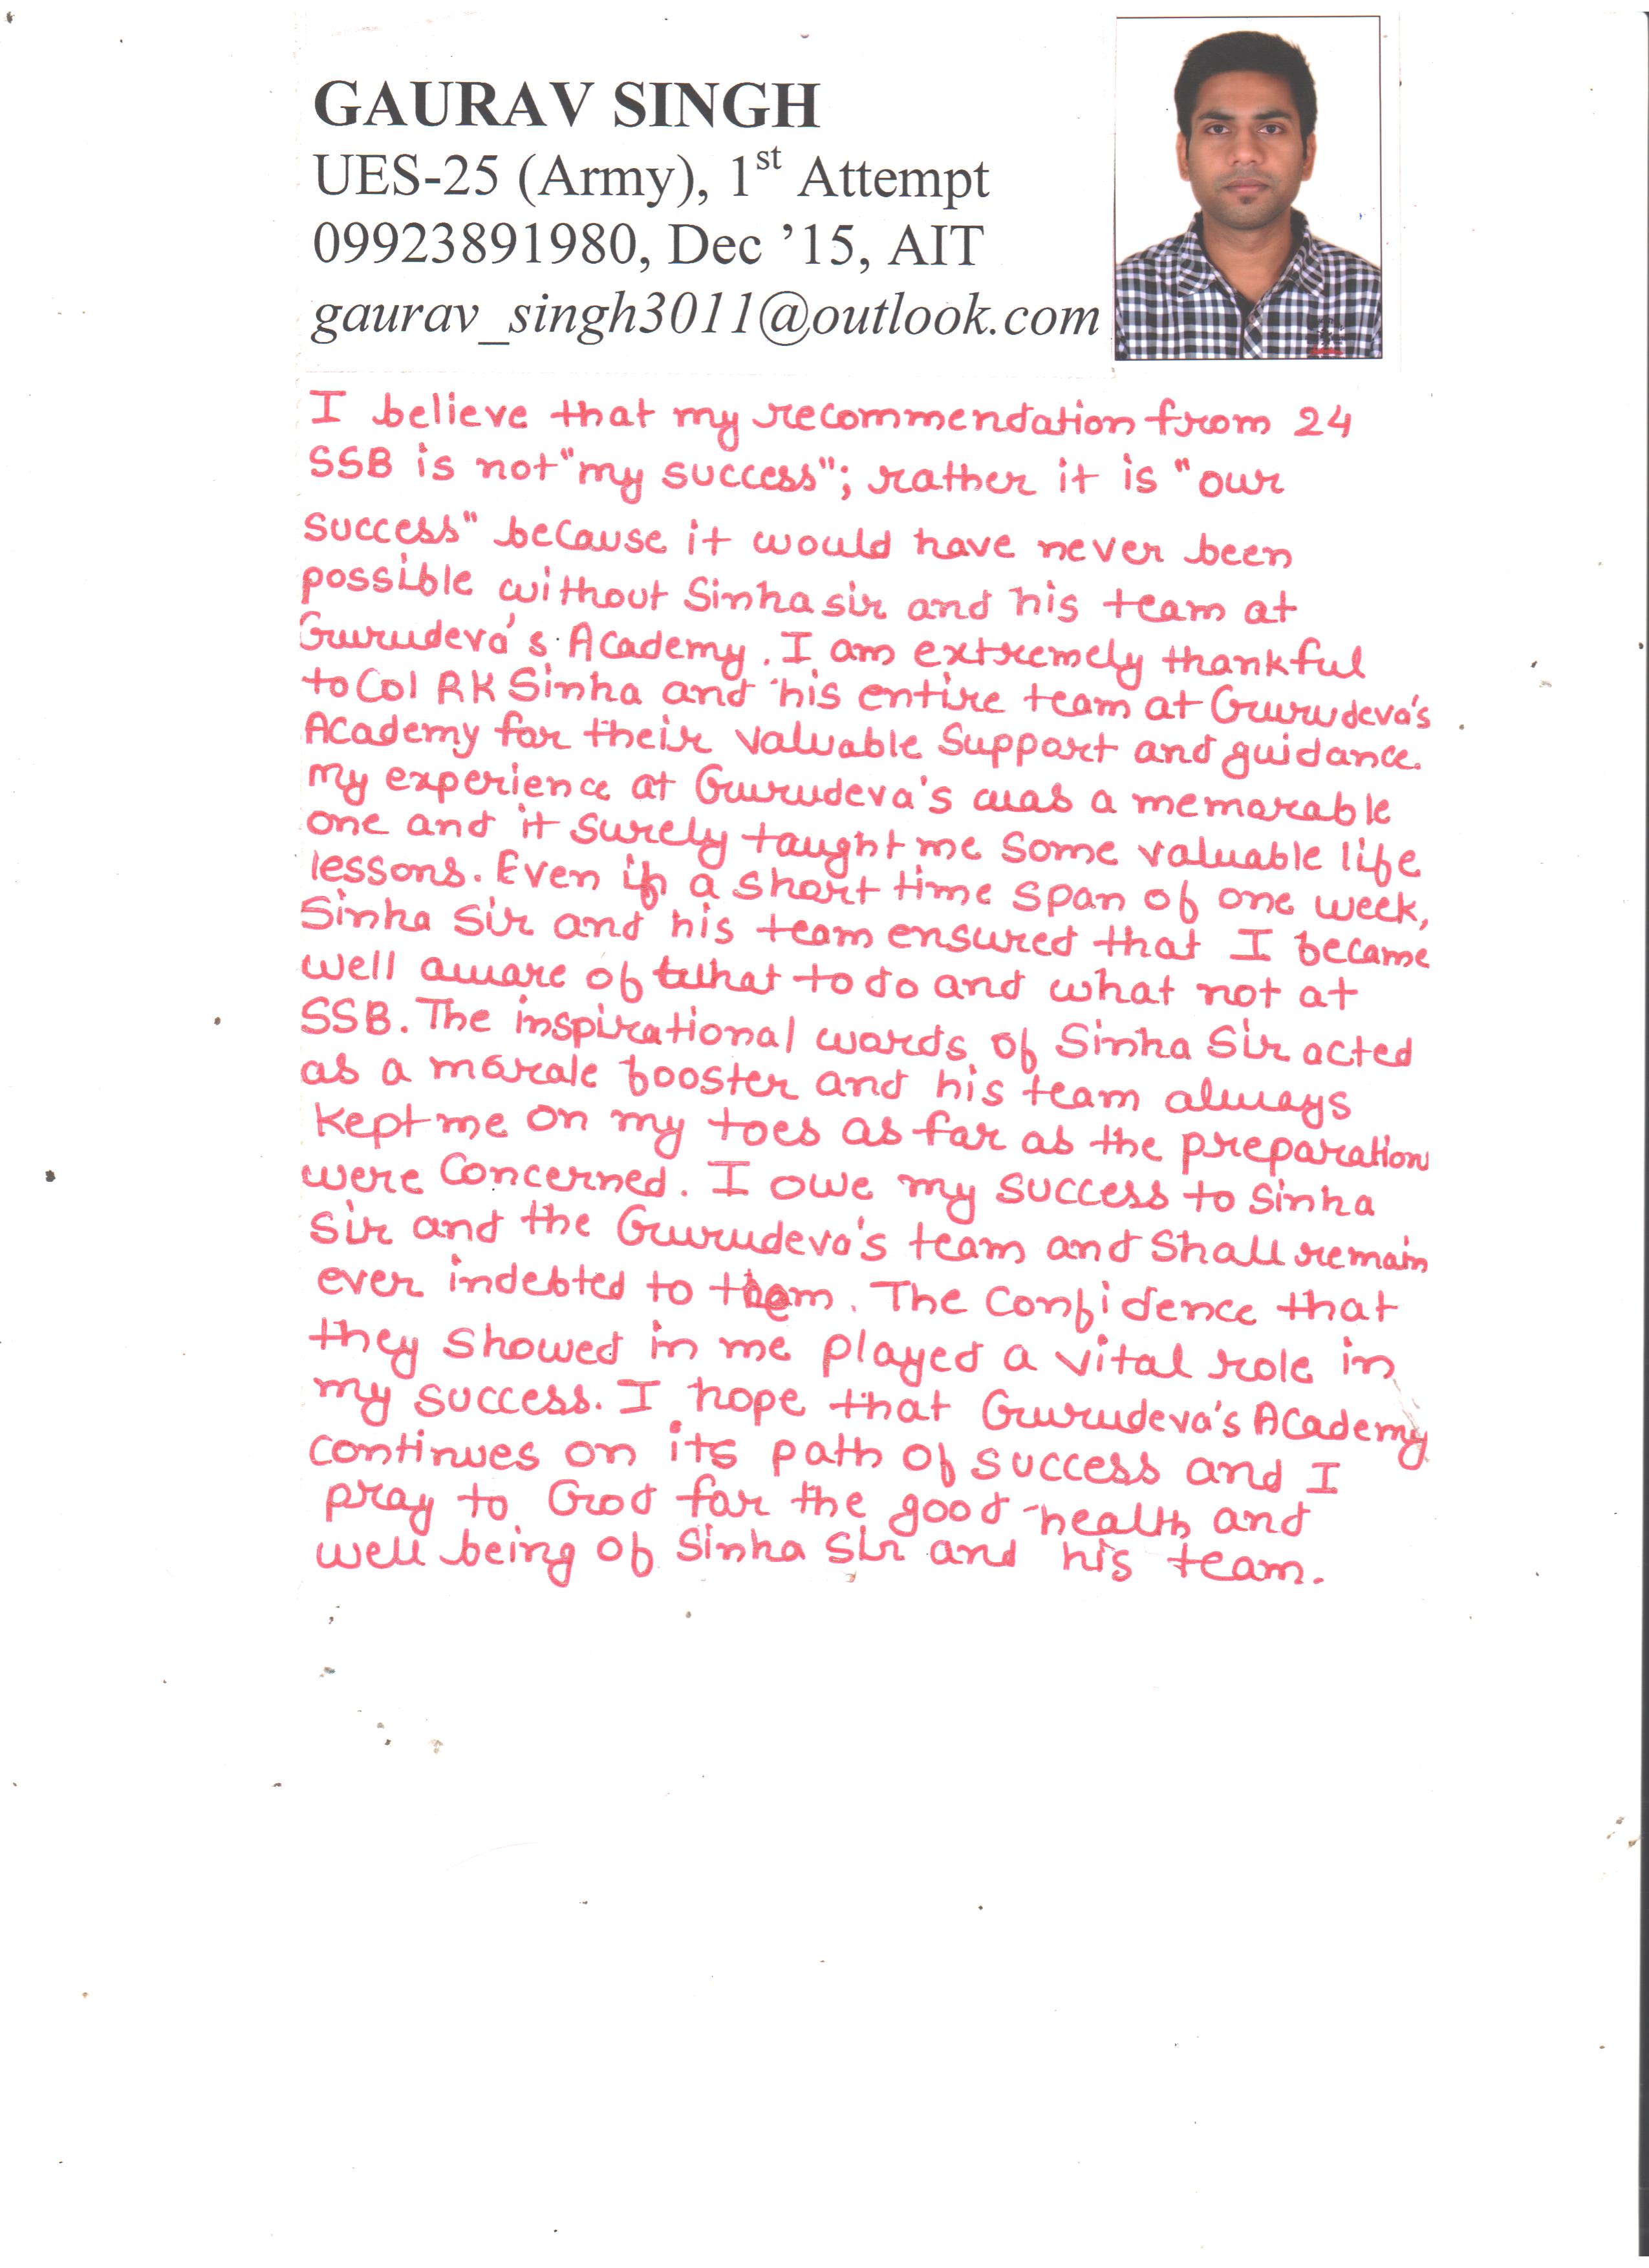 GAURAV SINGH
UES-25 (Army), 1st Attempt
09923891980, Dec ’15, AIT
gaurav_singh3011@outlook.com
I believe that my recommendation from 24
SSB is not "my success"; rather it is "our
success" because it would have never been
possible without Sinha sir and his team at
Gurudeva's Academy. I am extremely thankful
to Col RK Sinha and his entire team at Gurudeva's
Academy for their valuable support and guidance.
my experience at Gurudeva's was a memorable
one and it surely taught me some valuable life
lessons. Even in a short time span of one week,
Sinha Sir and his team ensured that I became
well aware of what to do and what not at
SSB. The inspirational words of Sinha Sir acted
as a morale booster and his team always
kept me on my toes as far as the preparation
were concerned. I owe my success to Sinha
Sir and the Gurudeva's team and shall remain
ever indebted to them. The confidence that
they showed in me played a vital role in
my success. I hope that Gurudeva's Academy
continues on its path of success and I
pray to God for the good health and
well being of Sinha Sir and his team.